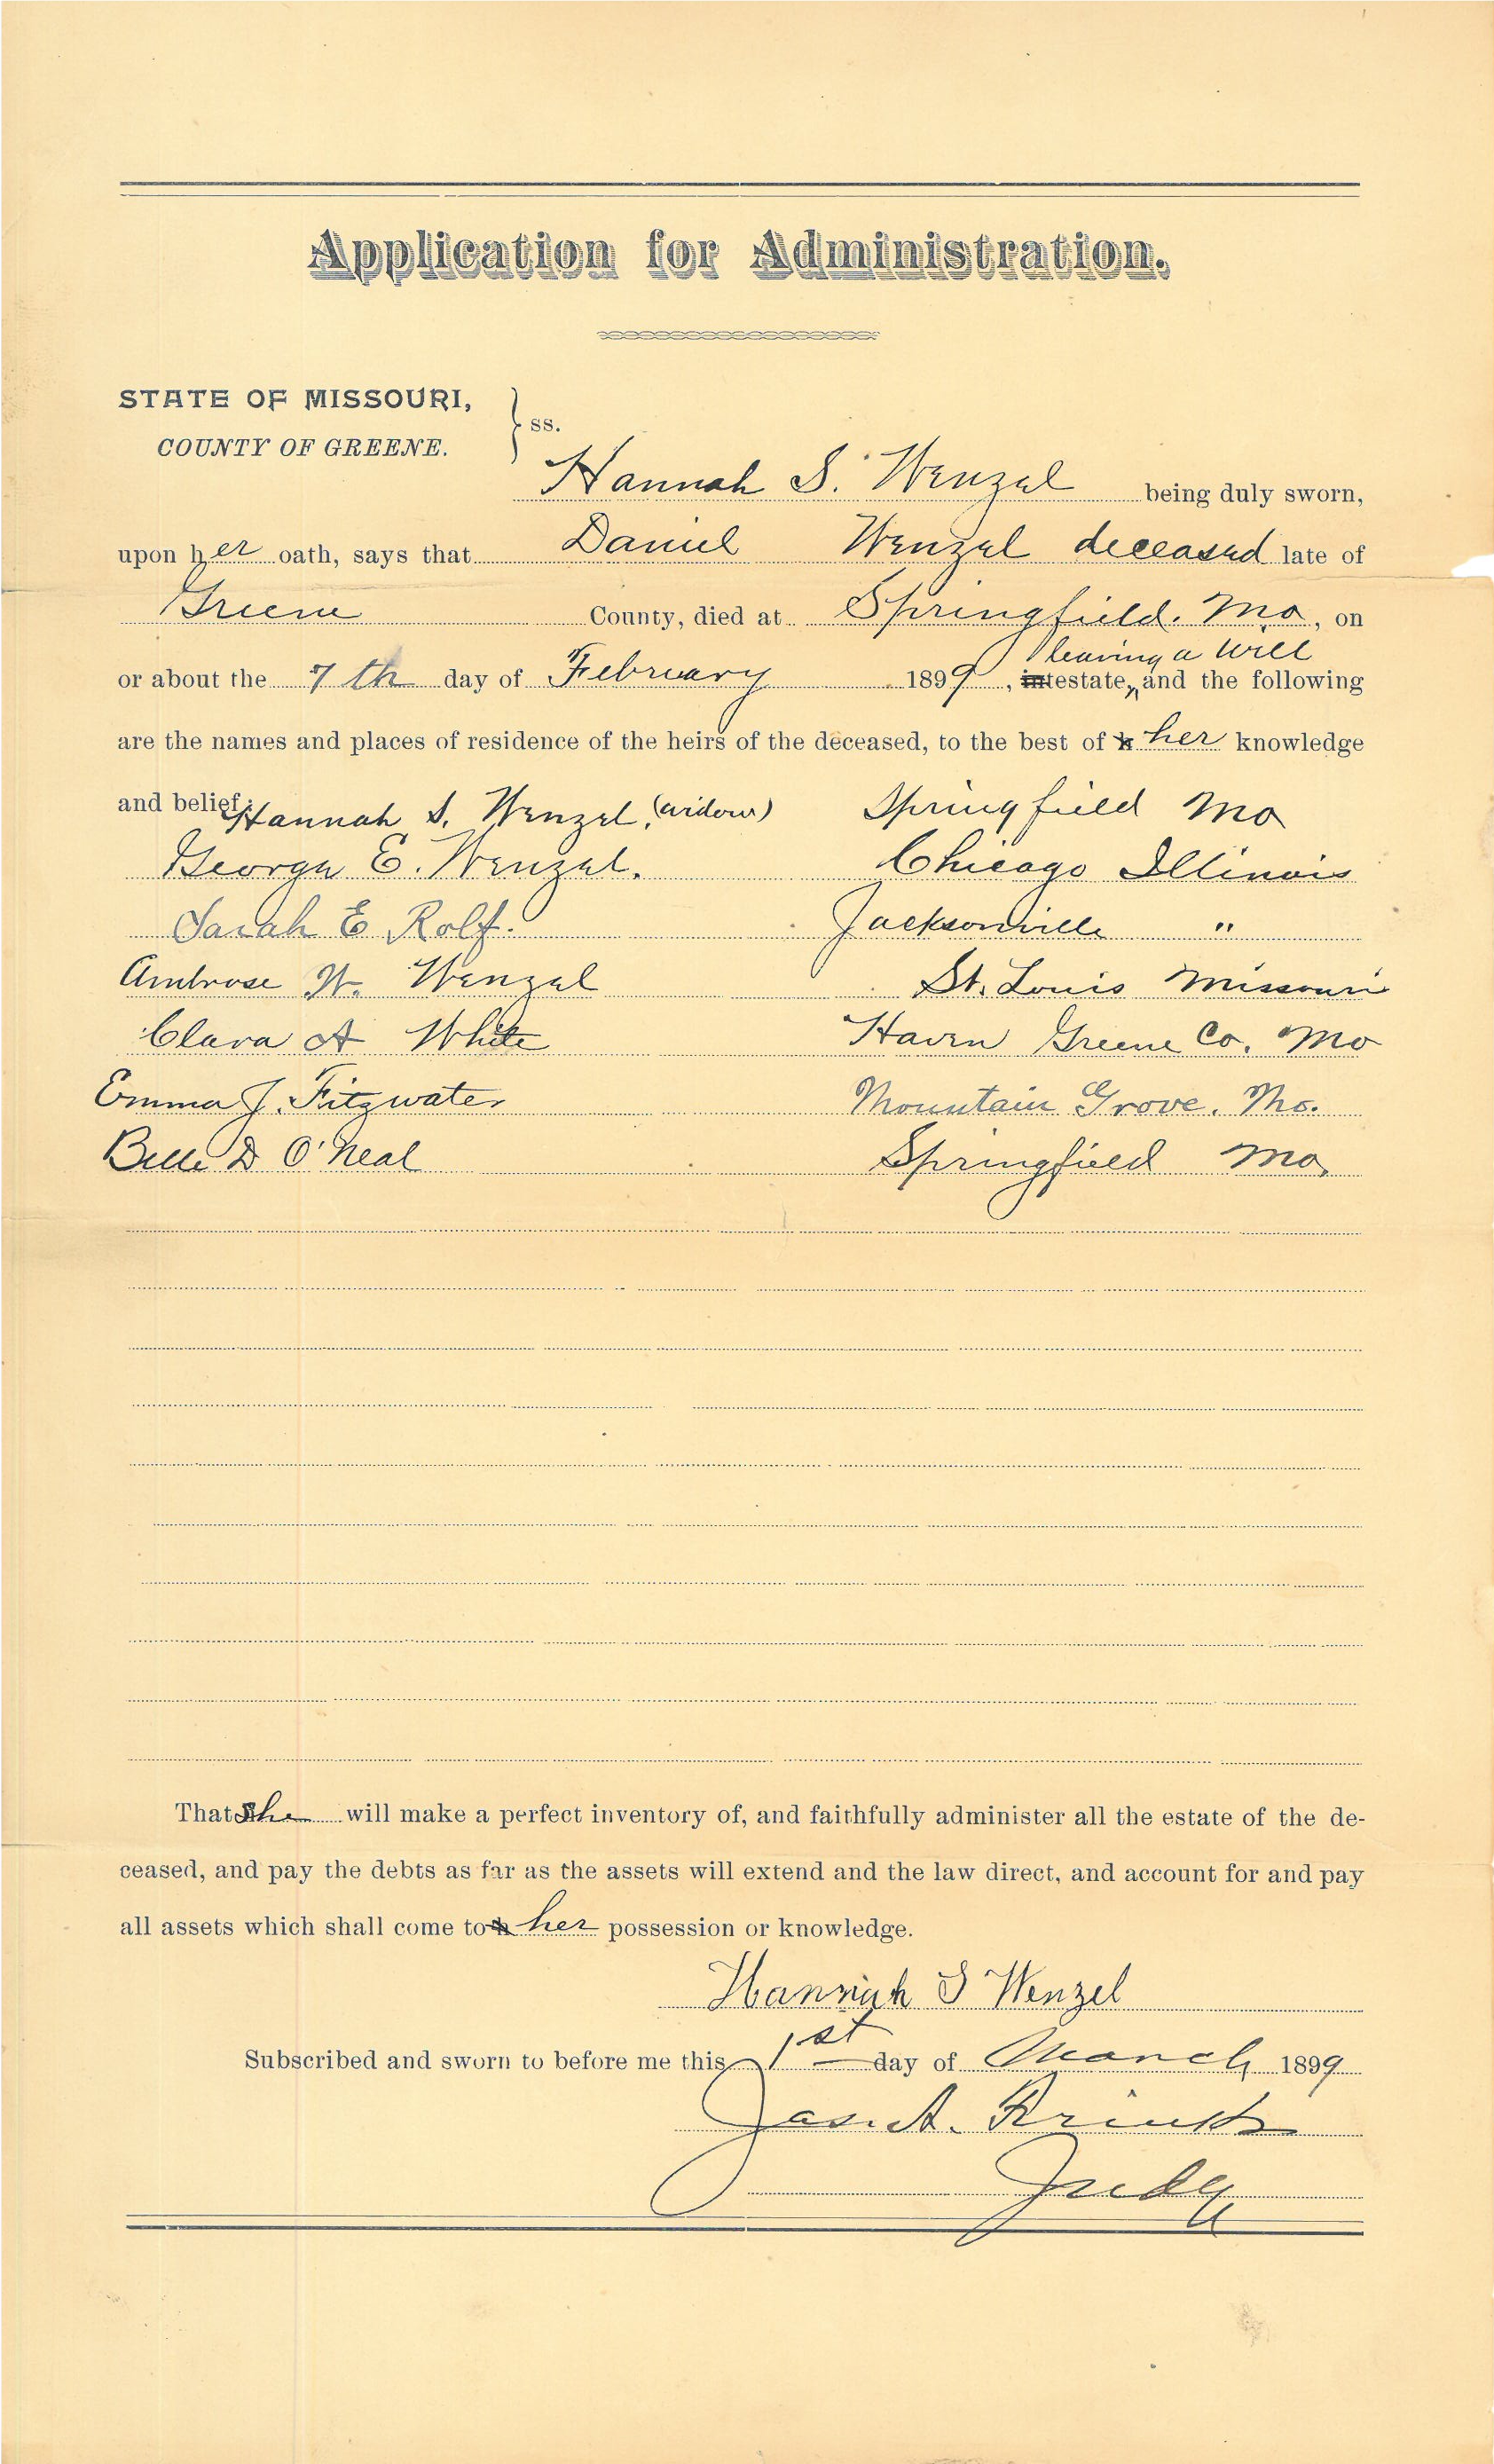 Application for Administration.
STATE OF MISSOURI,
COUNTY OF GREENE.
} ss.
Hannah S. Wenzel being duly sworn,
upon her oath, says that Daniel Wenzel deceased late of
Greene County, died at Springfield. Mo, on
leaving a will
or about the 7th day of February 1899, intestate, and the following
are the names and places of residence of the heirs of the deceased, to the best of h her knowledge
and belief: Hannah S. Wenzel, (widow) Springfield Mo
George E. Wenzel. Chicago Illinois
Sarah E Rolf. Jacksonville "
Ambrose W. Wenzel St. Louis Missouri
Clara A White Haven Greene Co. Mo
Emma J. Fitzwater Mountain Grove. Mo.
Belle D O'Neal Springfield Mo,
That She will make a perfect inventory of, and faithfully administer all the estate of the de-
ceased, and pay the debts as far as the assets will extend and the law direct, and account for and pay
all assets which shall come to h her possession or knowledge.
Hannah S Wenzel
Subscribed and sworn to before me this 1st day of March 1899
Jas. A.
Judg